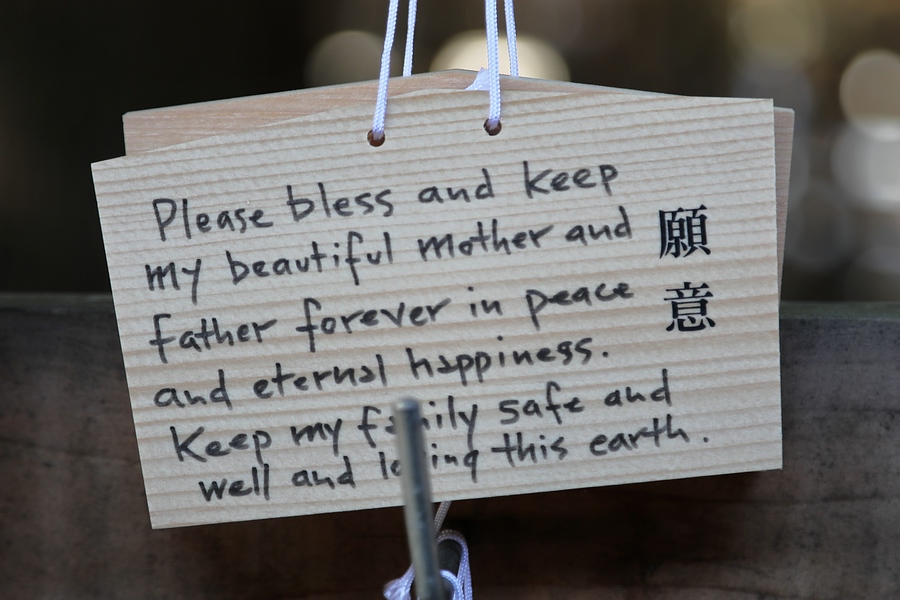 Please bless and keep
my beautiful mother and
father forever in peace
and eternal happiness.
Keep my family safe and
well and loving this earth.
願意